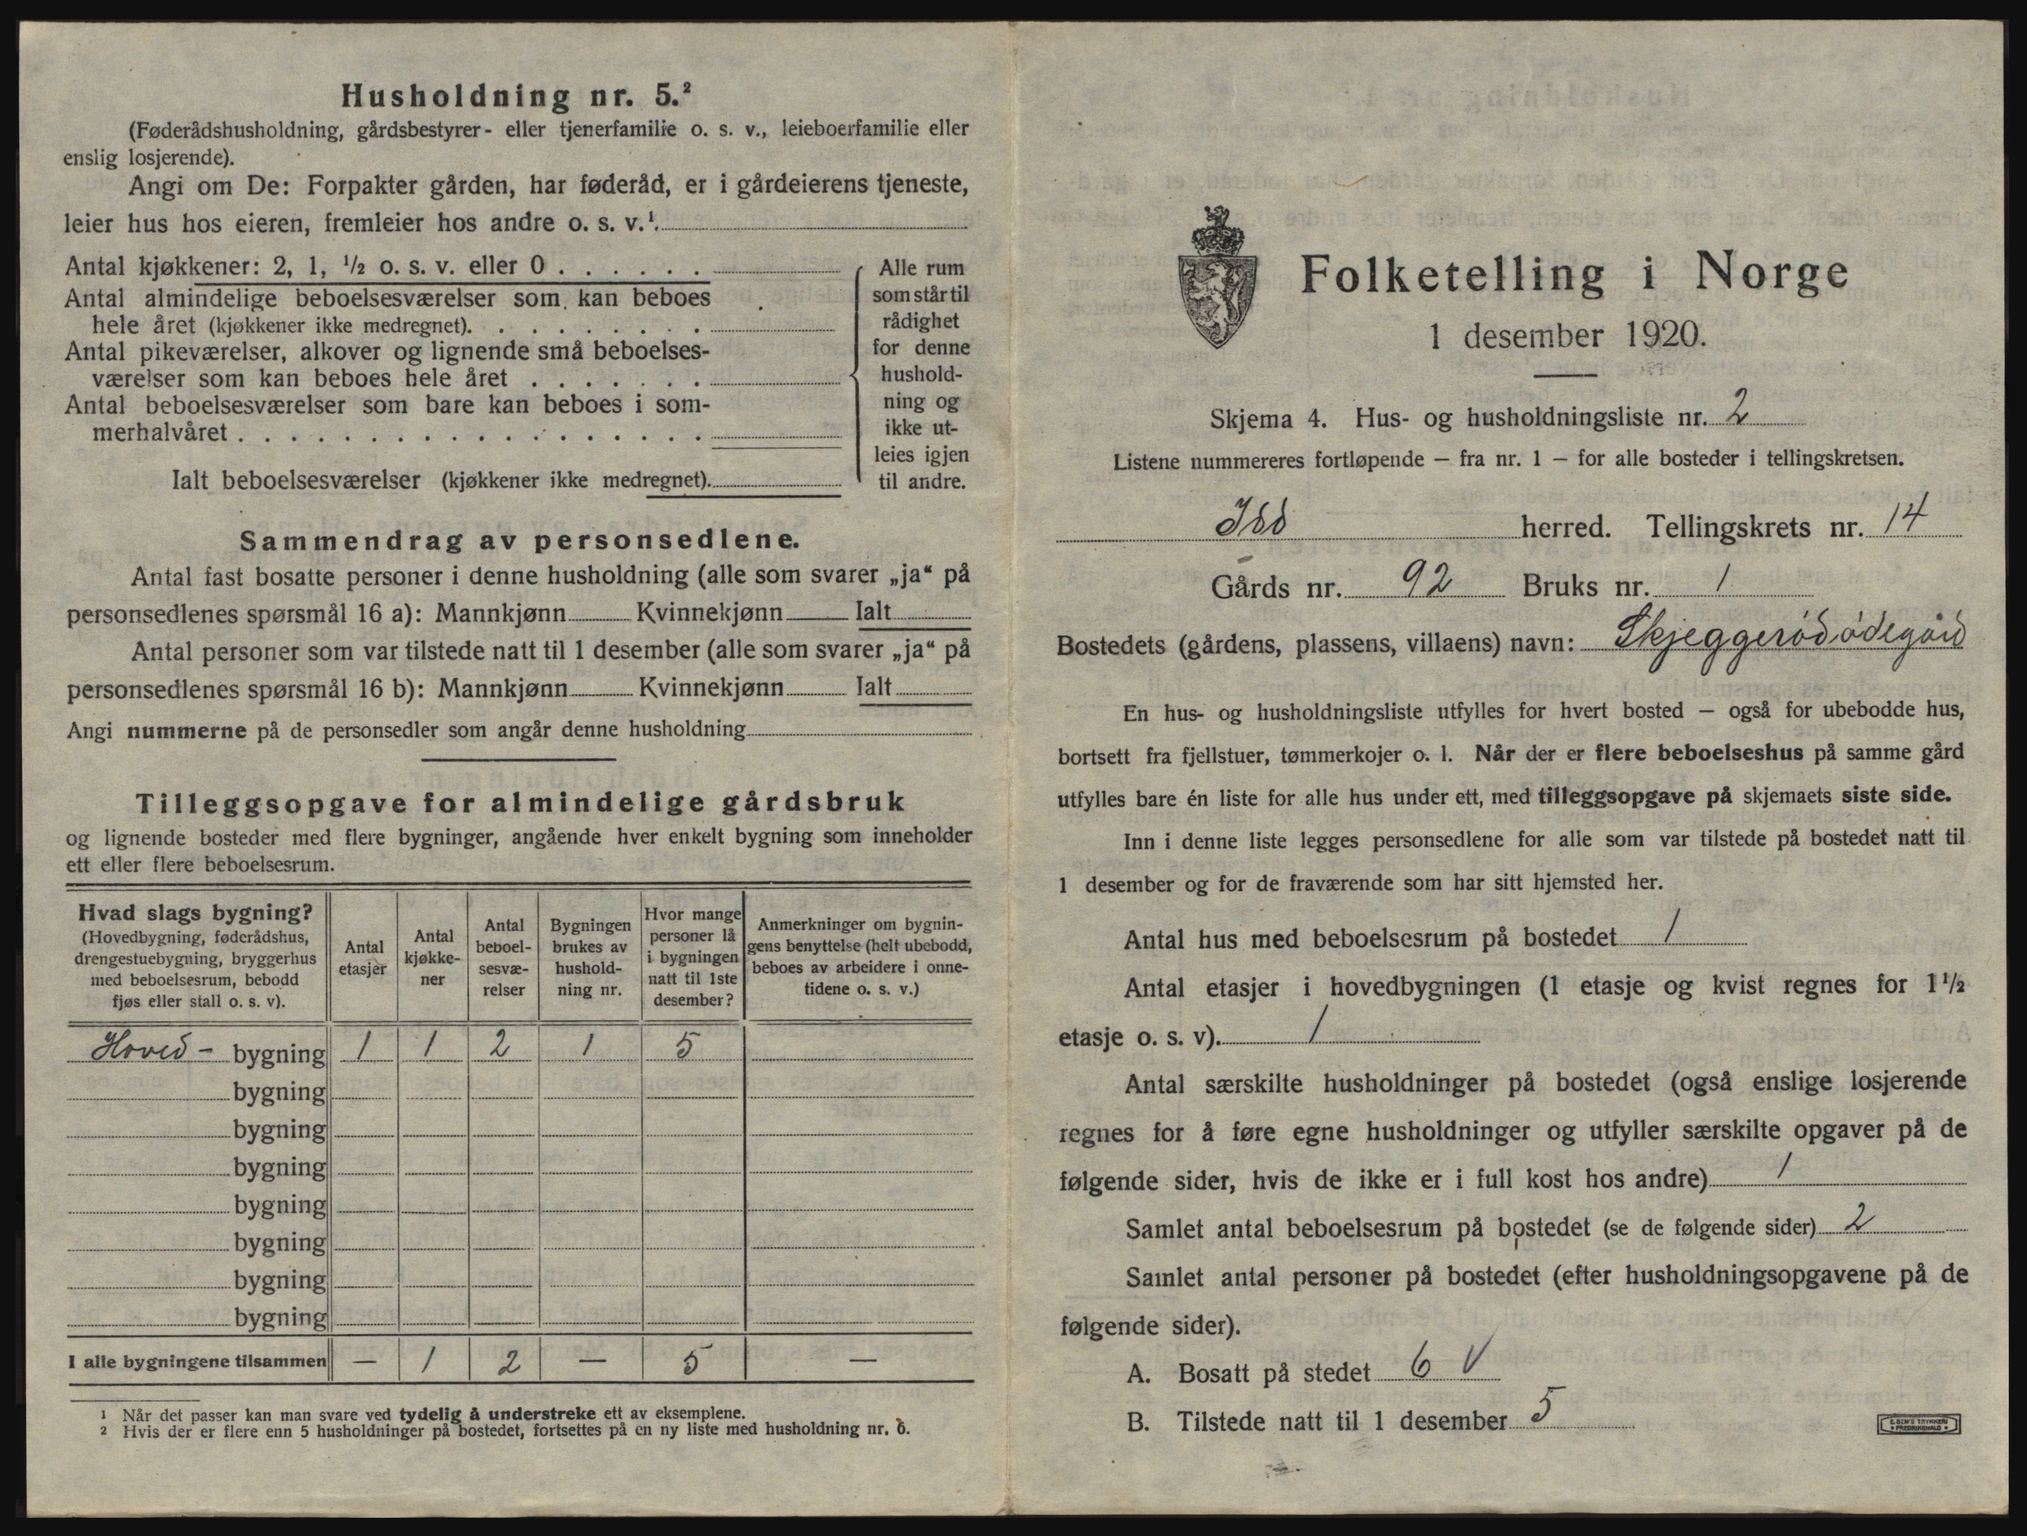 Husholdning nr. 5.²
(Føderådshusholdning, gårdsbestyrer- eller tjenerfamilie o. s. v., leieboerfamilie eller
enslig losjerende).
Angi om De: Forpakter gården, har føderåd, er i gårdeierens tjeneste,
leier hus hos eieren, fremleier hos andre o. s. v.¹.
Antal kjøkkener: 2, 1, ½ o. s. v. eller 0 . . . . . .
Antal almindelige beboelsesværelser som kan beboes
hele året (kjøkkener ikke medregnet). . . . . . . . .
Antal pikeværelser, alkover og lignende små beboelses-
værelser som kan beboes hele året . . . . . . .
Antal beboelsesværelser som bare kan beboes i som-
merhalvåret . . . . . . . . . . . . . . . . . .
Ialt beboelsesværelser (kjøkkener ikke medregnet).
Alle rum
som står til
rådighet
for denne
hushold-
ning og
ikke ut-
leies igjen
til andre.
Sammendrag av personsedlene.
Antal fast bosatte personer i denne husholdning (alle som svarer „ja“ på
personsedlenes spørsmål 16 a): Mannkjønn Kvinnekjønn Ialt
Antal personer som var tilstede natt til 1 desember (alle som svarer „ja“ på
personsedlenes spørsmål 16 b): Mannkjønn Kvinnekjønn Ialt
Angi nummerne på de personsedler som angår denne husholdning
Tilleggsopgave for almindelige gårdsbruk
og lignende bosteder med flere bygninger, angående hver enkelt bygning som inneholder
ett eller flere beboelsesrum.
Hvad slags bygning?
(Hovedbygning, føderådshus,
drengestuebygning, bryggerhus
med beboelsesrum, bebodd
fjøs eller stall o. s. v).
Antal
etasjer
Antal
kjøkke-
ner
Antal
beboel-
sesvæ-
relser
Bygningen
brukes av
hushold-
ning nr.
Hvor mange
personer lå
i bygningen
natt til 1ste
desember?
Anmerkninger om bygnin-
gens benyttelse (helt ubebodd,
beboes av arbeidere i onne-
tidene o. s. v.)
Hoved- bygning 1 1 2 1 5
bygning
bygning
bygning
bygning
bygning
bygning
bygning
I alle bygningene tilsammen — 1 2 — 5 —
¹ Når det passer kan man svare ved tydelig å understreke ett av eksemplene.
² Hvis der er flere enn 5 husholdninger på bostedet, fortsettes på en ny liste med husholdning nr. 6.
Folketelling i Norge
1 desember 1920.
Skjema 4. Hus- og husholdningsliste nr. 2
Listene nummereres fortløpende — fra nr. 1 — for alle bosteder i tellingskretsen.
Idd herred. Tellingskrets nr. 14
Gårds nr. 92 Bruks nr. 1
Bostedets (gårdens, plassens, villaens) navn: Skjeggerødødegård
En hus- og husholdningsliste utfylles for hvert bosted — også for ubebodde hus,
bortsett fra fjellstuer, tømmerkojer o. l. Når der er flere beboelseshus på samme gård
utfylles bare én liste for alle hus under ett, med tilleggsopgave på skjemaets siste side.
Inn i denne liste legges personsedlene for alle som var tilstede på bostedet natt til
1 desember og for de fraværende som har sitt hjemsted her.
Antal hus med beboelsesrum på bostedet 1
Antal etasjer i hovedbygningen (1 etasje og kvist regnes for 1½
etasje o. s. v). 1
Antal særskilte husholdninger på bostedet (også enslige losjerende
regnes for å føre egne husholdninger og utfyller særskilte opgaver på de
følgende sider, hvis de ikke er i full kost hos andre) 1
Samlet antal beboelsesrum på bostedet (se de følgende sider) 2
Samlet antal personer på bostedet (efter husholdningsopgavene på de
følgende sider).
A. Bosatt på stedet 6 V
B. Tilstede natt til 1 desember 5